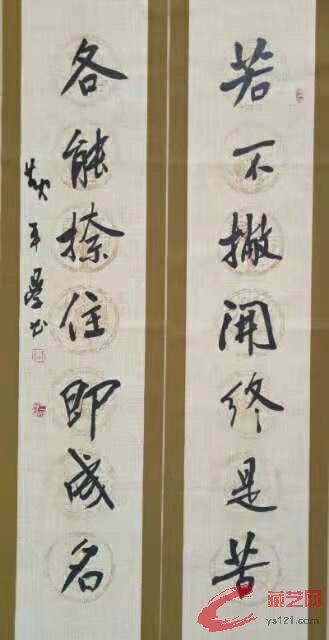 若不撇开终是苦
各能捺住即成名
藏艺网
ys121.com